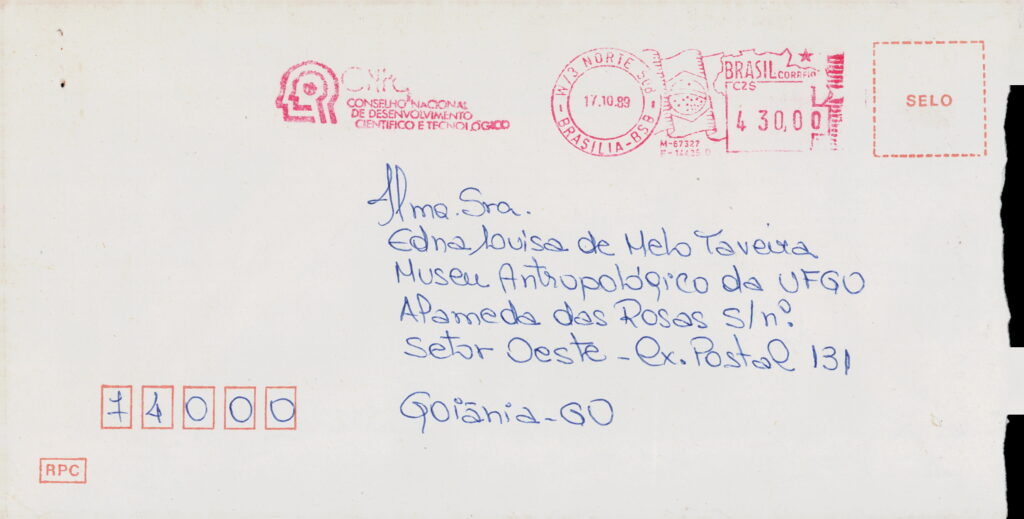 CNPq
CONSELHO NACIONAL
DE DESENVOLVIMENTO
CIENTÍFICO E TECNOLÓGICO
W/3 NORTE 508
17.10.89
BRASILIA-BSB
BRASIL CORREIO
CZ$
430,00
M-67327
SELO
Ilma. Sra.
Edna Louisa de Melo Taveira
Museu Antropológico da UFGO
Alameda das Rosas s/nº.
Setor Oeste - Cx. Postal 131
74000
Goiânia-GO
RPC